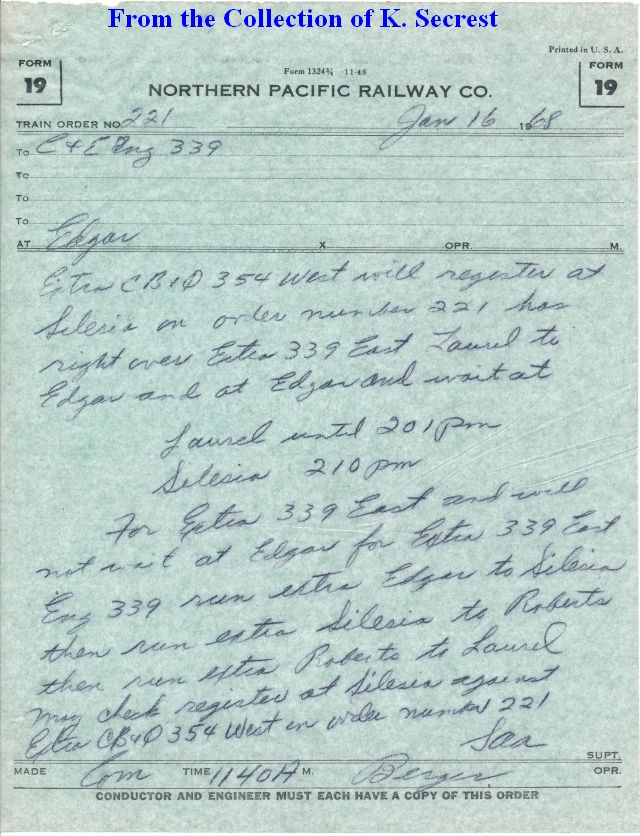 From the Collection of K. Secrest
Printed in U. S. A.
FORM 19
Form 1324¾ 11-48
FORM 19
NORTHERN PACIFIC RAILWAY CO.
TRAIN ORDER NO. 221 Jan 16 1968
To C & E Eng 339
To
To
To
AT Edgar X OPR. M.
Extra CB&Q 354 West will register at
Silesia on order number 221 has
right over Extra 339 East Laurel to
Edgar and at Edgar and wait at
Laurel until 201 pm
Silesia 210 pm
For Extra 339 East and will
not wait at Edgar for Extra 339 East
Eng 339 run extra Edgar to Silesia
then run extra Silesia to Roberts
then run extra Roberts to Laurel
may check register at Silesia against
Extra CB&Q 354 West on order number 221
SUPT.
MADE Com TIME 1140A M. Berger OPR.
CONDUCTOR AND ENGINEER MUST EACH HAVE A COPY OF THIS ORDER